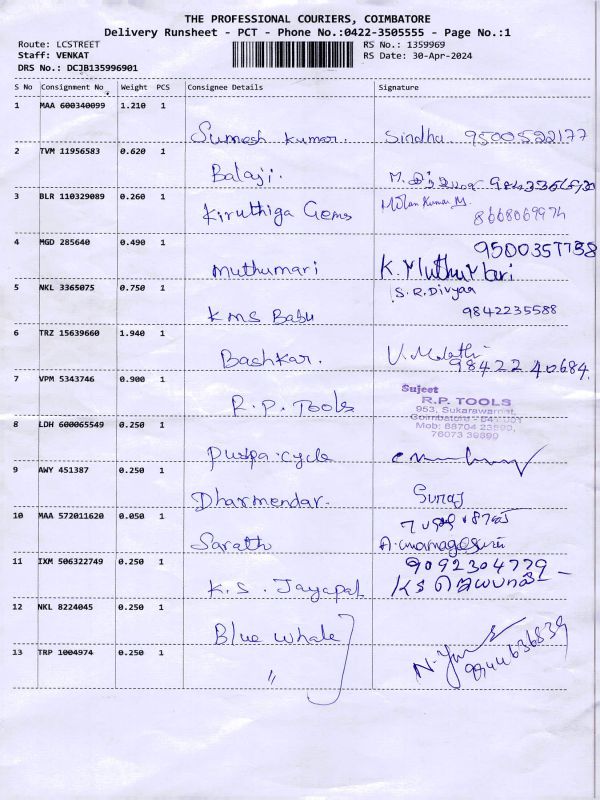 THE PROFESSIONAL COURIERS, COIMBATORE
Delivery Runsheet - PCT - Phone No.:0422-3505555 - Page No.:1
Route: LCSTREET
RS No.: 1359969
Staff: VENKAT
RS Date: 30-Apr-2024
DRS No.: DCJB135996901
S No Consignment No Weight PCS Consignee Details Signature
1 MAA 600340099 1.210 1
Sumesh Kumar. Sindhu 9500522177
2 TVM 11956583 0.620 1
Balaji. M.
3 BLR 110329089 0.260 1
Kiruthiga Gems Milan Kumar M. 8668069974
4 MGD 285640 0.490 1
9500357738
muthumari K. MuthuMari
5 NKL 3365075 0.750 1
S.R. Divyaa
KMS Babu 9842235588
6 TRZ 15639660 1.940 1
Bashkar. V. Malathi
98422 40684
7 VPM 5343746 0.900 1
R.P. Tools
Sujeet
R.P. TOOLS
953, Sukarawarpet,
Coimbatore - 641 001
Mob: 88704 23890,
76073 39899
8 LDH 600065549 0.250 1
Puspa cycle
9 AWY 451387 0.250 1
Dharmendar. Suraj
10 MAA 572011620 0.050 1
Sarath A.
11 IXM 506322749 0.250 1
9092304779
K.S. Jayapal
12 NKL 8224045 0.250 1
Blue Whale
13 TRP 1004974 0.250 1
"
9944636839